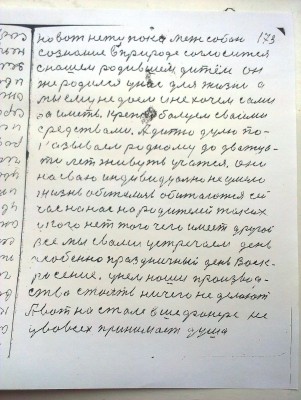 но вот нету пока меж собой 173
сознание в природе согласится
с нашем родившем дитём он
же родился у нас для жизни а
мы ему не даем и не хочем сами
за иметь. Крепко балуем своими
средствами. А дитю душу по-
казываем родному до двятцу-
ти лет живуть учатся, они
на сваю индивидуално не ушли
жизнь обителями обитаются сей-
час на нас на родителей таких
у кого нет того чего имеет другой
все мы сваим устрегаем день
особенно праздничный день Воск-
ресение. днем наши производ-
ства стоять ничего не делают
А вот на стали в шефонере не
у во всех принимает душа